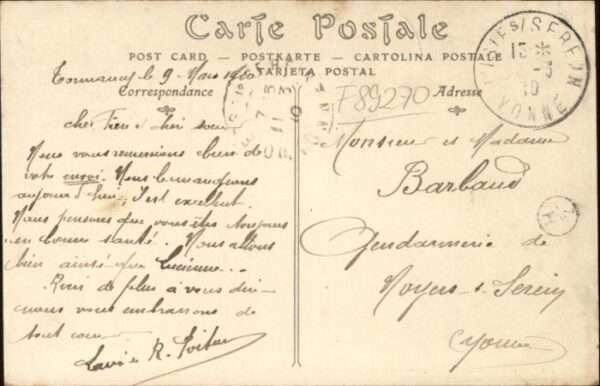 Carte Postale
POST CARD — POSTKARTE — CARTOLINA POSTALE
TARJETA POSTAL
Correspondance
Adresse
le 9 Mars
cher Frère & chère sœur
Nous vous remercions bien de
votre envoi. Nous le mangeons
aujourd'hui, il est excellent.
Nous pensons que vous êtes toujours
en bonne santé. Nous allons
bien ainsi que Lucienne..
Rien de plus à vous dire
nous vous embrassons de
tout cœur
R. Poitou
F89270
Monsieur et Madame
Barbaud
Gendarmerie de
Noyers s. Serein
Yonne
S/SEREIN
YONNE